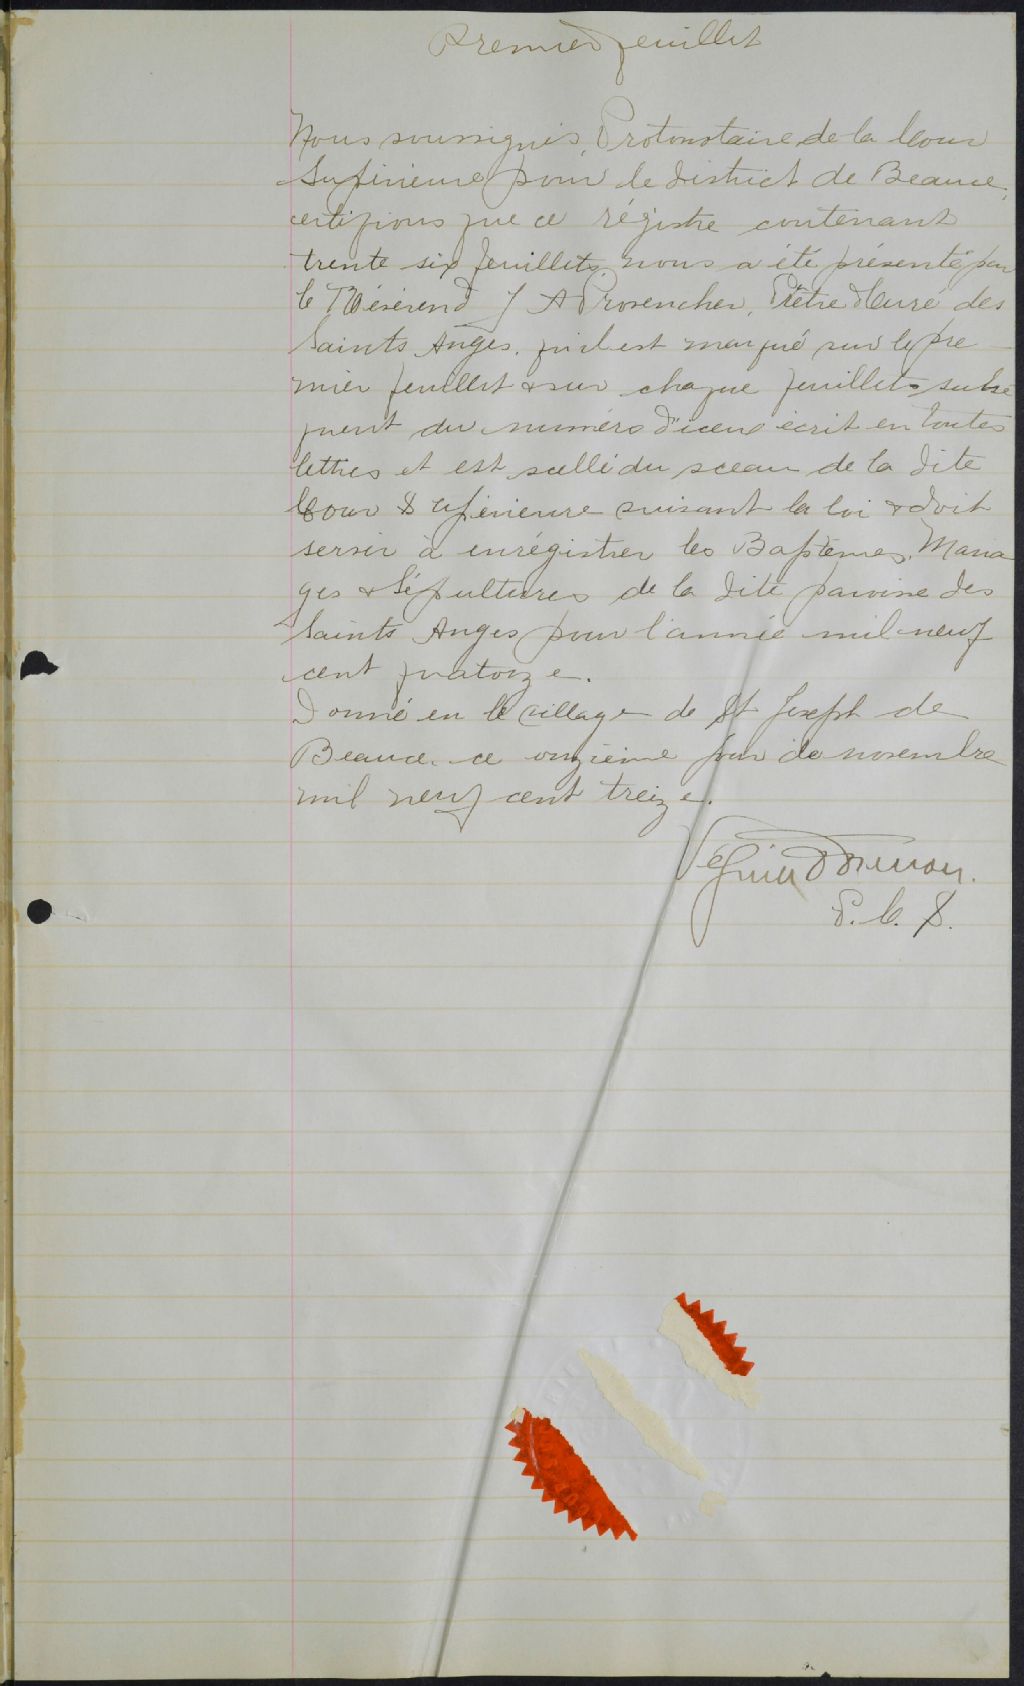 Premier feuillet
Nous soussignés, Protonotaire de la Cour
Supérieure pour le district de Beauce,
certifions que ce régistre contenant
trente six feuillets nous a été présenté par
le Révérend J A Provencher, Prêtre Curé des
Saints Anges, qu'il est marqué sur le pre
mier feuillet & sur chaque feuillets subsé
quent du numéro d'iceux écrit en toutes
lettres et est scellé du sceau de la dite
Cour Supérieure suivant la loi & doit
servir à enrégistrer les Baptêmes, Maria
ges & Sépultures de la dite paroisse des
Saints Anges pour l'année mil neuf
cent quatorze.
Donné en le village de St Joseph de
Beauce, ce onzième jour de novembre
mil neuf cent treize.
P. C. S.